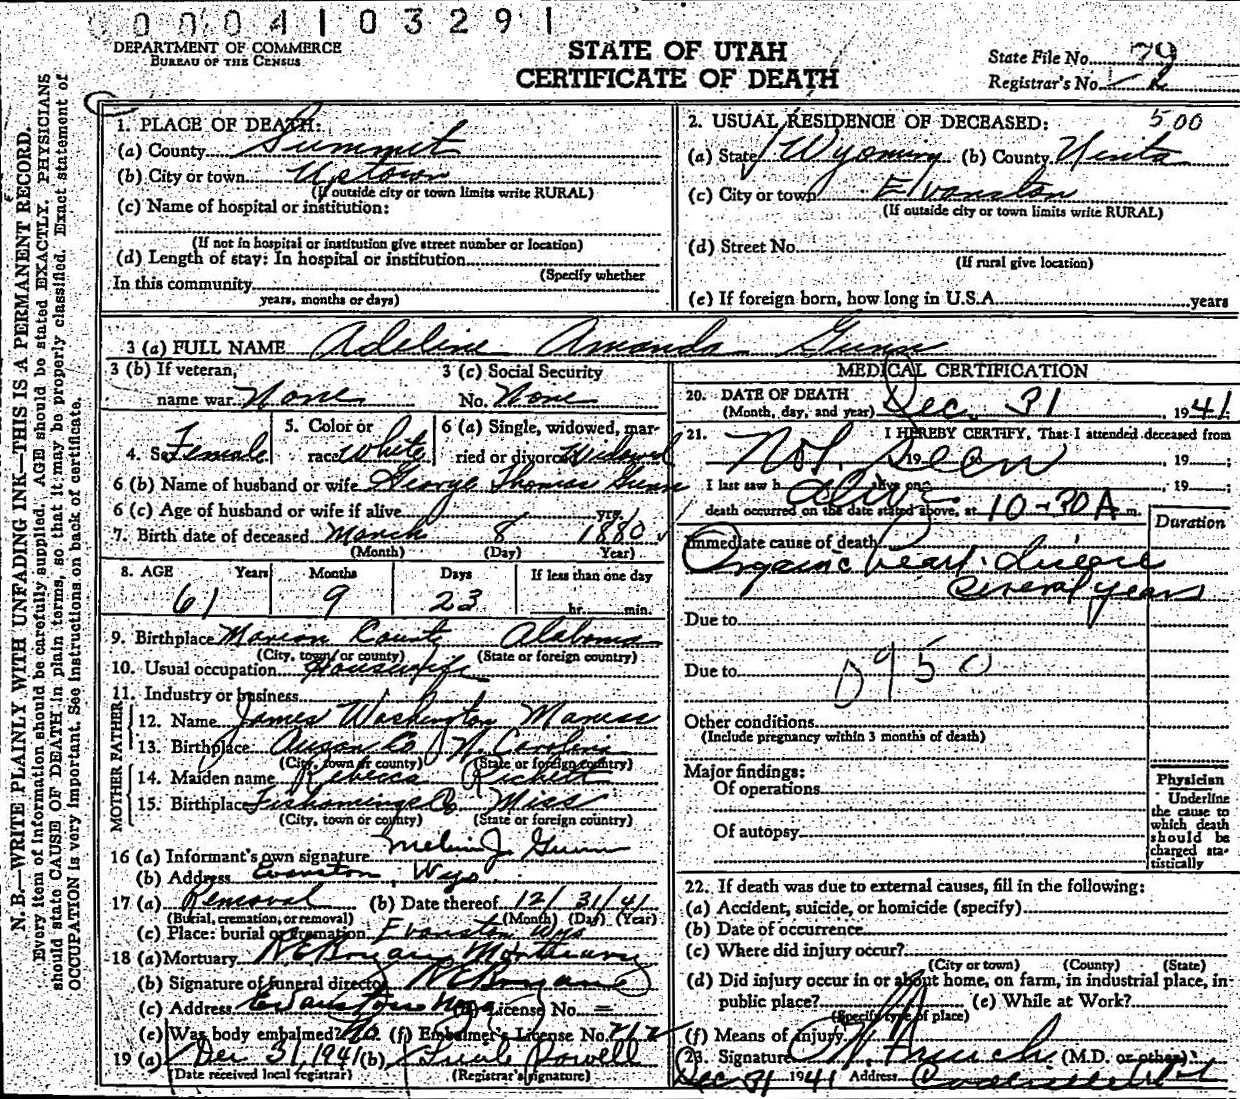 0004103291
DEPARTMENT OF COMMERCE
BUREAU OF THE CENSUS
STATE OF UTAH
CERTIFICATE OF DEATH
State File No. 79
Registrar's No. 2
N. B.—WRITE PLAINLY WITH UNFADING INK—THIS IS A PERMANENT RECORD.
Every item of information should be carefully supplied. AGE should be stated EXACTLY. PHYSICIANS
should state CAUSE OF DEATH in plain terms, so that it may be properly classified. Exact statement of
OCCUPATION is very important. See instructions on back of certificate.
1. PLACE OF DEATH:
(a) County Summit
(b) City or town Uptown
(If outside city or town limits write RURAL)
(c) Name of hospital or institution:
(If not in hospital or institution give street number or location)
(d) Length of stay: In hospital or institution
(Specify whether
In this community
years, months or days)
2. USUAL RESIDENCE OF DECEASED: 500
(a) State Wyoming (b) County Uinta
(c) City or town Evanston
(If outside city or town limits write RURAL)
(d) Street No.
(If rural give location)
(e) If foreign born, how long in U.S.A. years
3 (a) FULL NAME Adeline Amanda Gunn
3 (b) If veteran,
name war None
3 (c) Social Security
No. None
4. Sex Female
5. Color or
race White
6 (a) Single, widowed, mar-
ried or divorced Widowed
6 (b) Name of husband or wife George Thomas Gunn
6 (c) Age of husband or wife if alive yrs.
7. Birth date of deceased March 8 1880
(Month) (Day) Year)
8. AGE Years Months Days If less than one day
61 9 23 hr. min.
9. Birthplace Marion County Alabama
(City, town or county) (State or foreign country)
10. Usual occupation Housewife
11. Industry or business
FATHER
12. Name James Washington Maness
13. Birthplace Co N. Carolina
(City, town or county) (State or foreign country)
MOTHER
14. Maiden name Rebecca
15. Birthplace Tishomingo Co Miss
(City, town or county) (State or foreign country)
16 (a) Informant's own signature Melvin J. Gunn
(b) Address Evanston, Wyo.
17 (a) Removal (b) Date thereof 12/31/41
(Burial, cremation, or removal) (Month) (Day) (Year)
(c) Place: burial or cremation Evanston Wyo
18 (a) Mortuary Mortuary
(b) Signature of funeral director
(c) Address Evanston Wyo (d) License No. —
(e) Was body embalmed? No. (f) Embalmer's License No. 212
19 (a) Dec 31, 1941 (b) Powell
(Date received local registrar) (Registrar's signature)
MEDICAL CERTIFICATION
20. DATE OF DEATH
(Month, day, and year) Dec. 31, 1941
21. I HEREBY CERTIFY, That I attended deceased from
Not seen, 19, 19;
I last saw h alive on, 19;
alive
death occurred on the date stated above, at 10-30 A m.
Duration
Immediate cause of death
Organic heart disease
several years
Due to
Due to 0950
Other conditions
(Include pregnancy within 3 months of death)
Major findings:
Of operations
Of autopsy
Physician
Underline
the cause to
which death
should be
charged sta-
tistically
22. If death was due to external causes, fill in the following:
(a) Accident, suicide, or homicide (specify)
(b) Date of occurrence
(c) Where did injury occur?
(City or town) (County) (State)
(d) Did injury occur in or about home, on farm, in industrial place, in
public place? (e) While at Work?
(Specify type of place)
(f) Means of injury
23. Signature (M.D. or other)
Dec 31 1941 Address